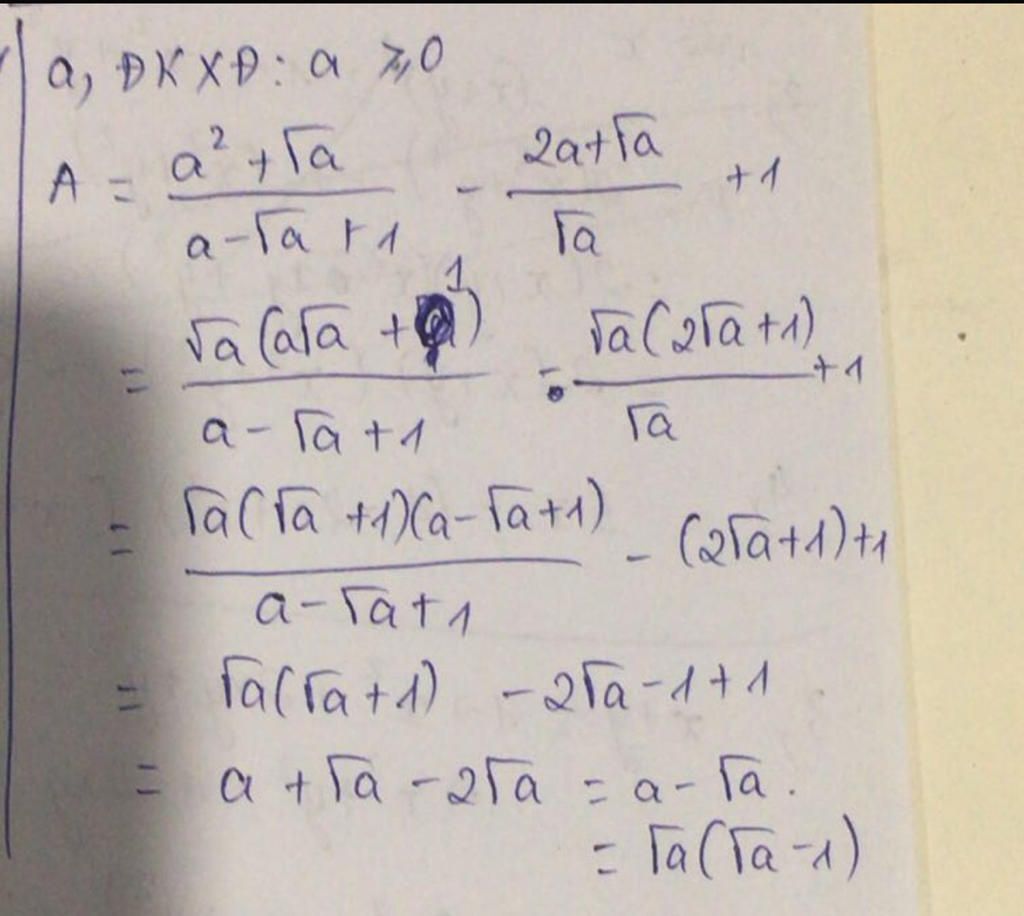 a, ĐKXĐ: a ≥ 0
A = \frac{a² + √a}{a - √a + 1} - \frac{2a + √a}{√a} + 1
= \frac{√a(a√a + 1)}{a - √a + 1} - \frac{√a(2√a + 1)}{√a} + 1
= \frac{√a(√a + 1)(a - √a + 1)}{a - √a + 1} - (2√a + 1) + 1
= √a(√a + 1) - 2√a - 1 + 1
= a + √a - 2√a = a - √a.
= √a(√a - 1)